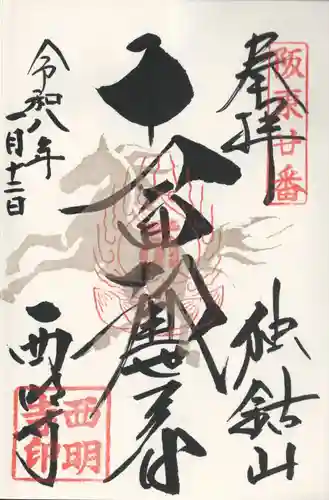 奉拝
阪東廿番
独鈷山
十一面観世音
令和八年
一月十二日
西明寺
西明寺印